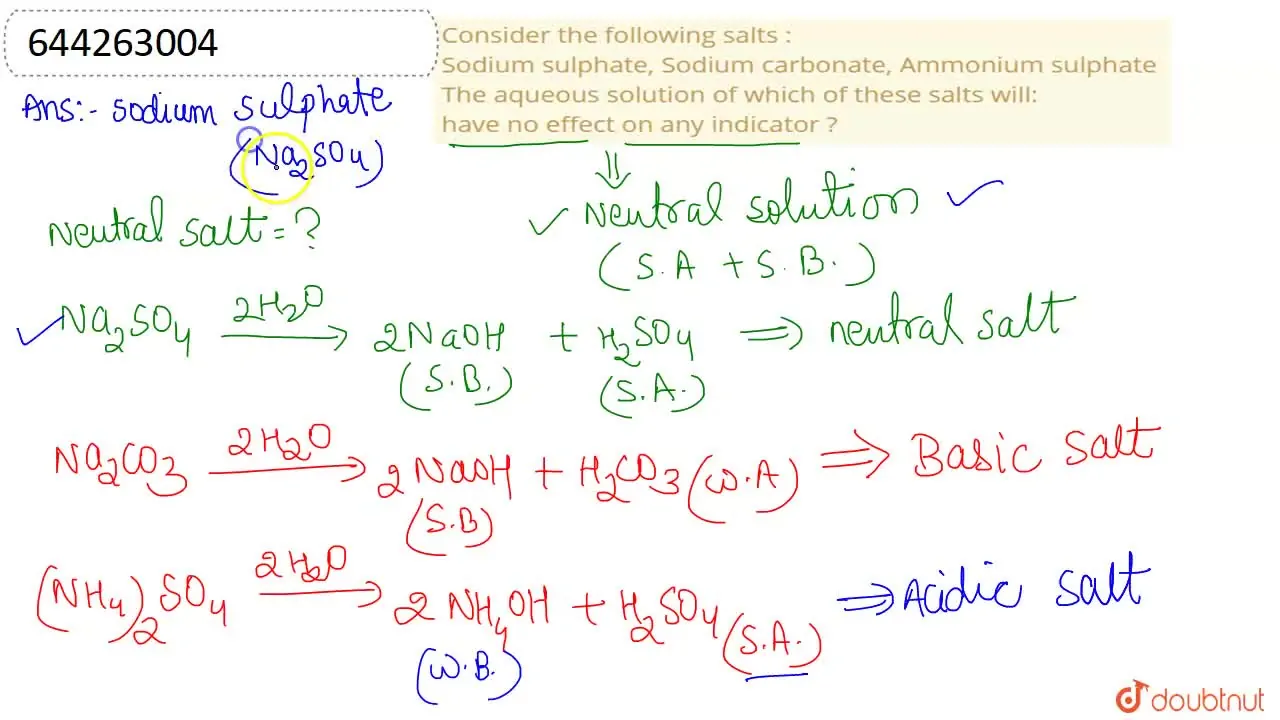 644263004
Consider the following salts :
Sodium sulphate, Sodium carbonate, Ammonium sulphate
The aqueous solution of which of these salts will:
have no effect on any indicator ?
Ans:- Sodium Sulphate
(Na₂SO₄)
⇓
✓ Neutral solution ✓
(S.A + S.B.)
Neutral salt = ?
✓ Na₂SO₄ —2H₂O→ 2NaOH + H₂SO₄ ⇒ neutral salt
(S.B.) (S.A.)
Na₂CO₃ —2H₂O→ 2NaOH + H₂CO₃ (W.A) ⇒ Basic Salt
(S.B)
(NH₄)₂SO₄ —2H₂O→ 2NH₄OH + H₂SO₄ (S.A.) ⇒ Acidic Salt
(W.B.)
doubtnut